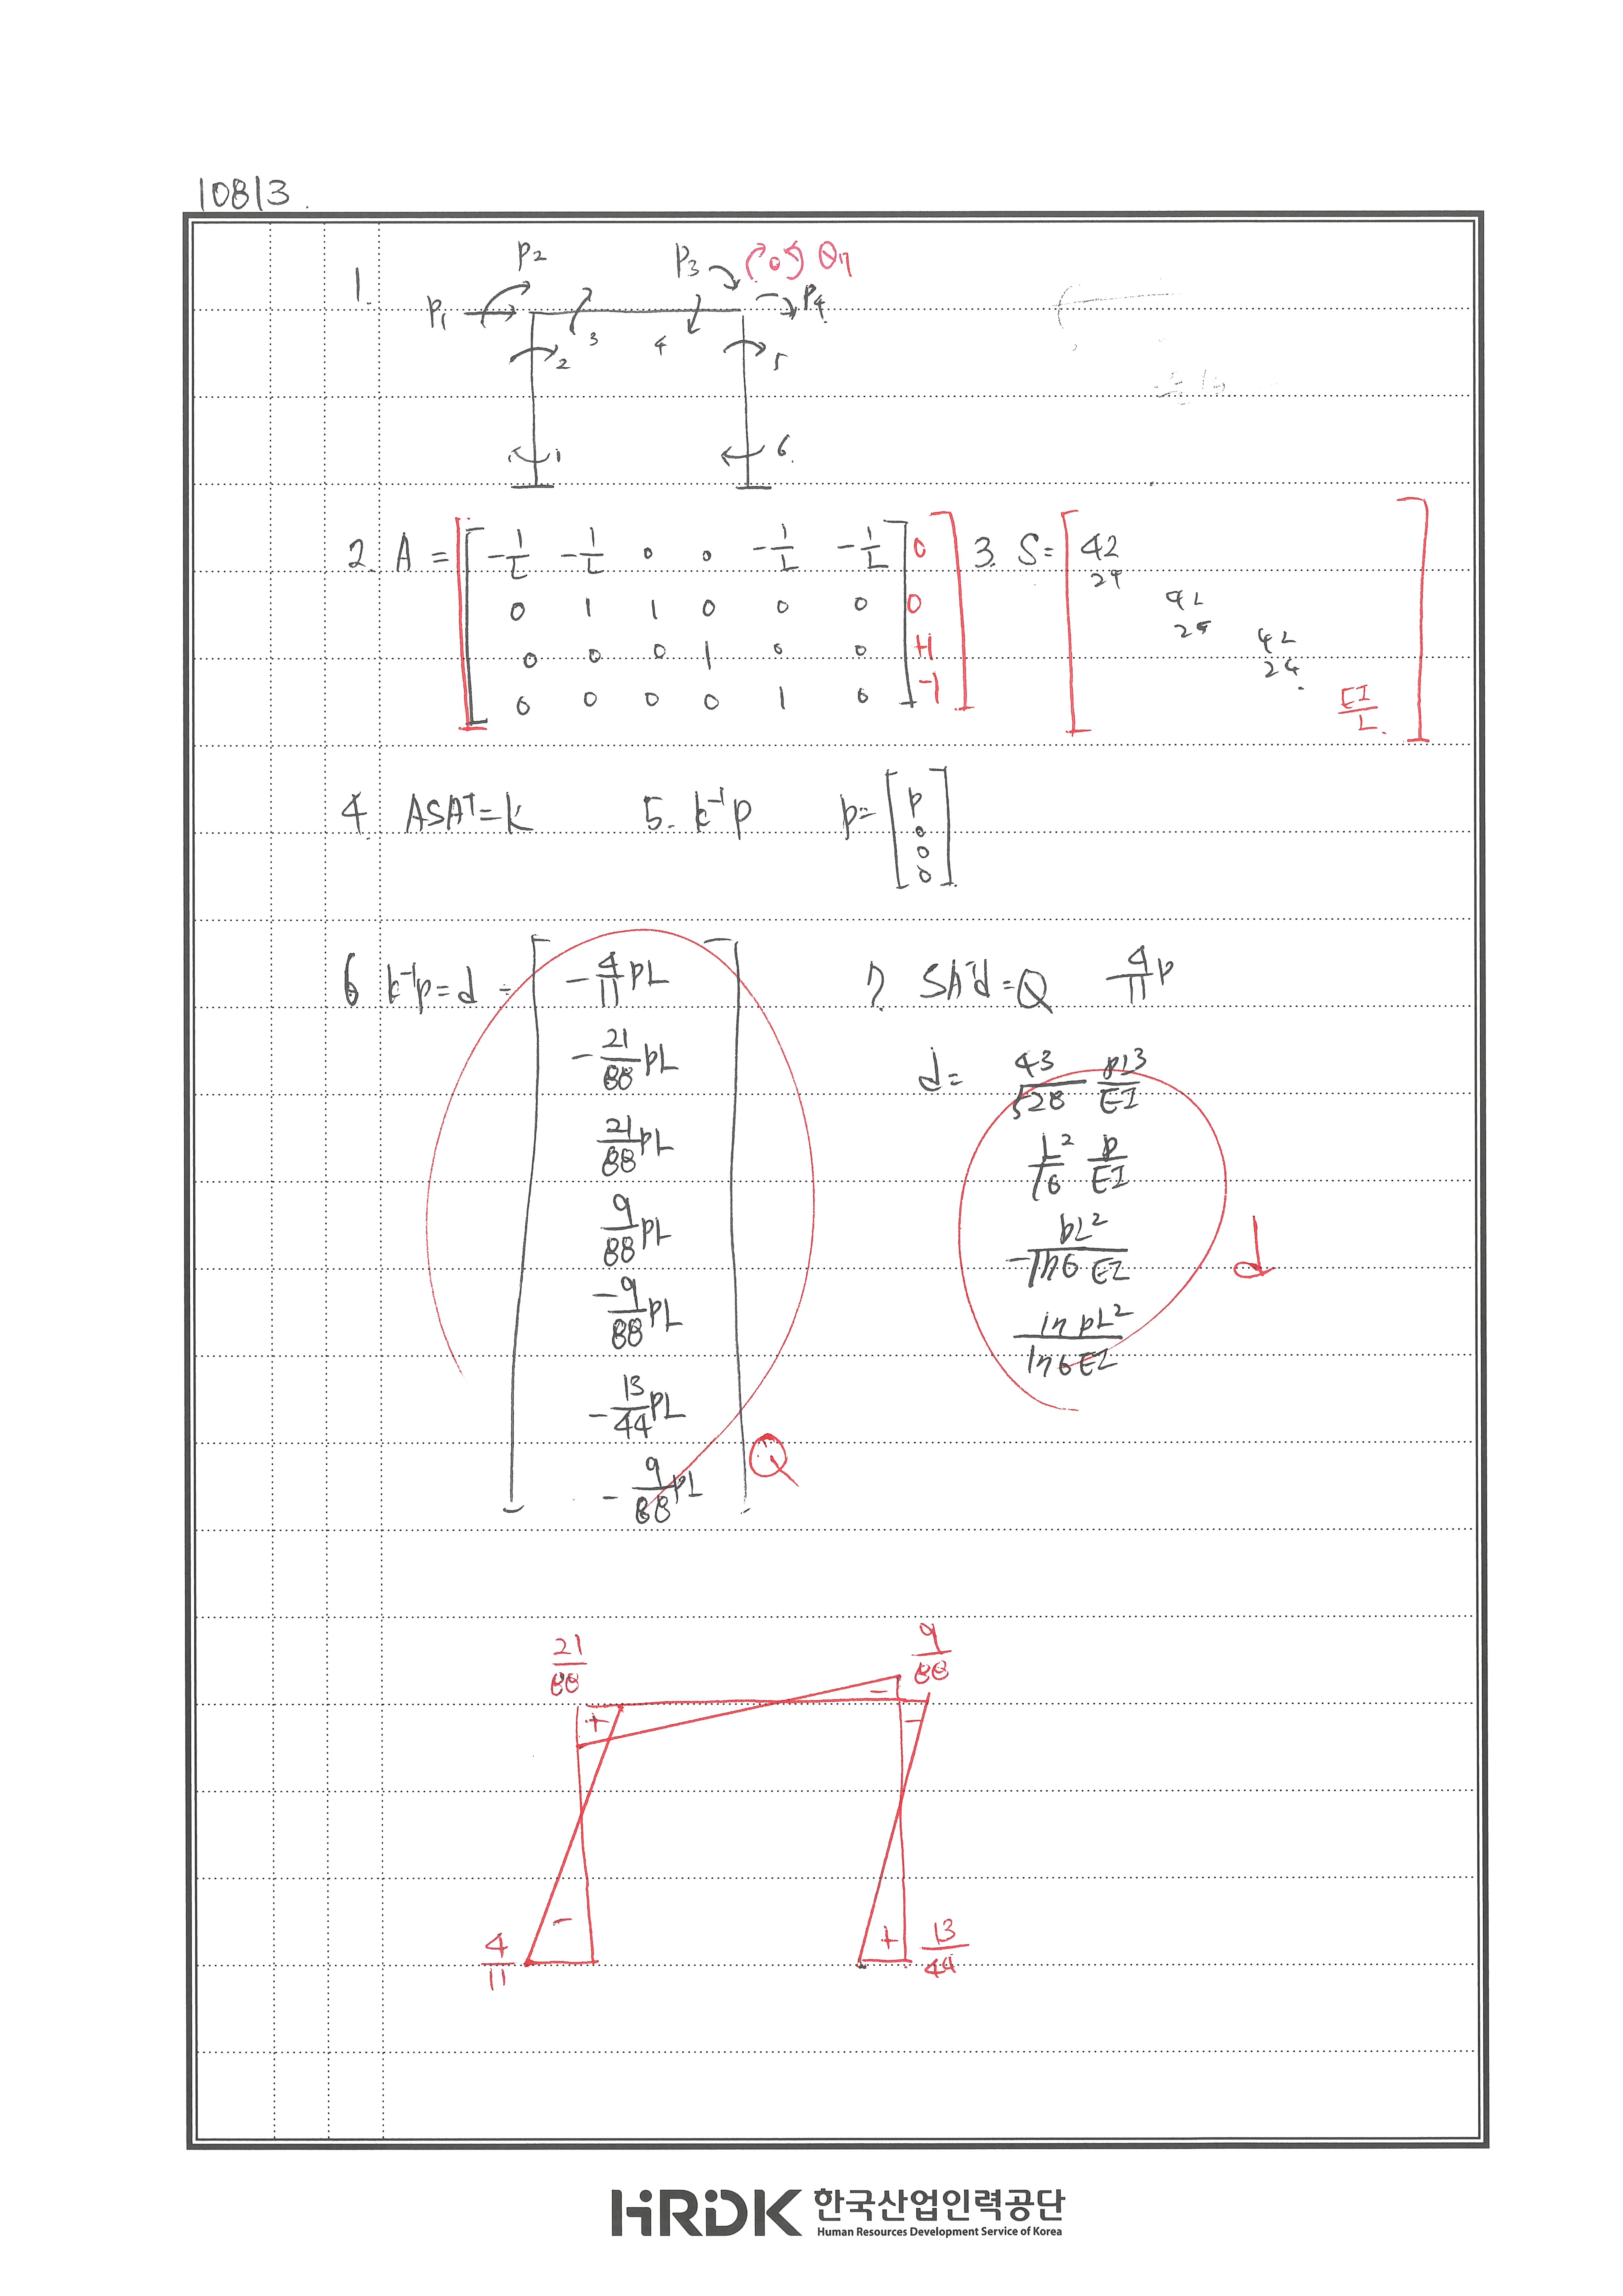 10813.
1.
P1
P2
P3
Q7
P4
1 2 3 4 5 6.
2. A = [ -1/L -1/L 0 0 -1/L -1/L 0
0 1 1 0 0 0 0
0 0 0 1 0 0 +1
0 0 0 0 1 0 -1 ]
3. S = [ 42
24
4 2
2 4
4 2
2 4
EI/L ]
4. ASAᵀ=k 5. k⁻¹p p= [ p
0
0
0 ]
6 k⁻¹p=d = [ -4/11 PL
-21/88 PL
21/88 PL
9/88 PL
-9/88 PL
-13/44 PL
-9/88 PL ]
Q
7. SAᵀd=Q 4/11 P
d= 43/528 PL³/EI
L²/16 P/EI
-PL²/176 EI
17 PL²/176 EI
d
21/88
9/88
+ - -
- +
4/11
13/44
HRDK 한국산업인력공단
Human Resources Development Service of Korea